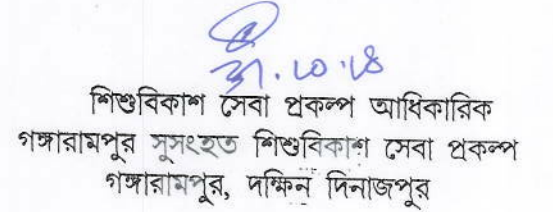 শিশুবিকাশ সেবা প্রকল্প আধিকারিক
গঙ্গারামপুর সুসংহত শিশুবিকাশ সেবা প্রকল্প
গঙ্গারামপুর, দক্ষিন দিনাজপুর